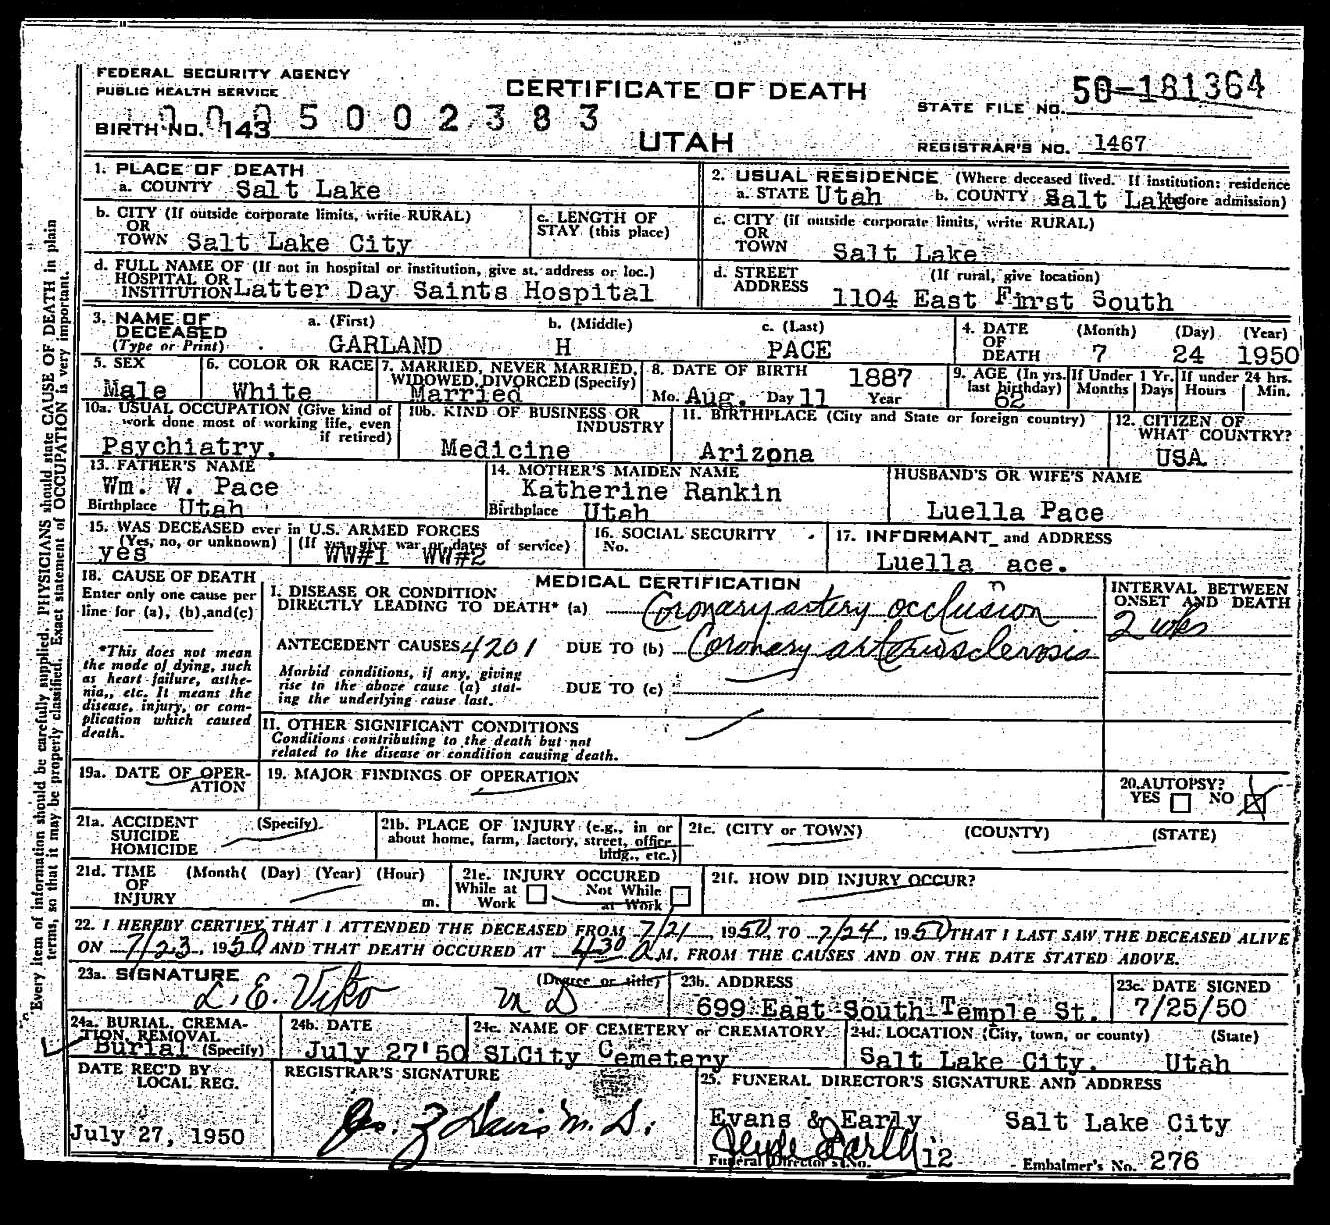 FEDERAL SECURITY AGENCY
PUBLIC HEALTH SERVICE
CERTIFICATE OF DEATH
STATE FILE NO. 50-181364
1005002383
BIRTH NO. 143
UTAH
REGISTRAR'S NO. 1467
1. PLACE OF DEATH
a. COUNTY Salt Lake
2. USUAL RESIDENCE (Where deceased lived. If institution: residence before admission)
a. STATE Utah b. COUNTY Salt Lake
b. CITY (If outside corporate limits, write RURAL)
OR
TOWN Salt Lake City
c. LENGTH OF
STAY (this place)
c. CITY (if outside corporate limits, write RURAL)
OR
TOWN Salt Lake
d. FULL NAME OF (If not in hospital or institution, give st. address or loc.)
HOSPITAL OR
INSTITUTION Latter Day Saints Hospital
d. STREET (If rural, give location)
ADDRESS 1104 East First South
3. NAME OF
DECEASED
(Type or Print)
a. (First) b. (Middle) c. (Last)
GARLAND H PACE
4. DATE
OF
DEATH
(Month) (Day) (Year)
7 24 1950
5. SEX
Male
6. COLOR OR RACE
White
7. MARRIED, NEVER MARRIED,
WIDOWED, DIVORCED (Specify)
Married
8. DATE OF BIRTH 1887
Mo. Aug. Day 11 Year
9. AGE (In yrs.
last birthday)
62
If Under 1 Yr.
Months Days
If under 24 hrs.
Hours Min.
10a. USUAL OCCUPATION (Give kind of
work done most of working life, even
if retired)
Psychiatry,
10b. KIND OF BUSINESS OR
INDUSTRY
Medicine
11. BIRTHPLACE (City and State or foreign country)
Arizona
12. CITIZEN OF
WHAT COUNTRY?
USA
13. FATHER'S NAME
Wm. W. Pace
Birthplace Utah
14. MOTHER'S MAIDEN NAME
Katherine Rankin
Birthplace Utah
HUSBAND'S OR WIFE'S NAME
Luella Pace
15. WAS DECEASED ever in U.S. ARMED FORCES
(Yes, no, or unknown) (If yes, give war or dates of service)
yes WW#1 WW#2
16. SOCIAL SECURITY
No.
17. INFORMANT and ADDRESS
Luella ace.
18. CAUSE OF DEATH
Enter only one cause per
line for (a), (b), and(c)
*This does not mean
the mode of dying, such
as heart failure, asthe-
nia,, etc. It means the
disease, injury, or com-
plication which caused
death.
MEDICAL CERTIFICATION
I. DISEASE OR CONDITION
DIRECTLY LEADING TO DEATH* (a) Coronary artery occlusion
ANTECEDENT CAUSES 4201 DUE TO (b) Coronary arteriosclerosis
Morbid conditions, if any, giving
rise to the above cause (a) stat-
ing the underlying cause last.
DUE TO (c)
INTERVAL BETWEEN
ONSET AND DEATH
2 wks
II. OTHER SIGNIFICANT CONDITIONS
Conditions contributing to the death but not
related to the disease or condition causing death.
19a. DATE OF OPER-
ATION
19. MAJOR FINDINGS OF OPERATION
20. AUTOPSY?
YES NO X
21a. ACCIDENT (Specify)
SUICIDE
HOMICIDE
21b. PLACE OF INJURY (e.g., in or
about home, farm, factory, street, office
bldg., etc.)
21c. (CITY or TOWN) (COUNTY) (STATE)
21d. TIME (Month( (Day) (Year) (Hour)
OF
INJURY m.
21e. INJURY OCCURED
While at Work Not While at Work
21f. HOW DID INJURY OCCUR?
22. I HEREBY CERTIFY THAT I ATTENDED THE DECEASED FROM 7/21, 1950, TO 7/24, 1950 THAT I LAST SAW THE DECEASED ALIVE
ON 7/23, 1950 AND THAT DEATH OCCURED AT 430 a M. FROM THE CAUSES AND ON THE DATE STATED ABOVE.
23a. SIGNATURE (Degree or title)
L. E. Viko M D
23b. ADDRESS
699 East South Temple St.
23c. DATE SIGNED
7/25/50
24a. BURIAL, CREMA-
TION, REMOVAL
Burial (Specify)
24b. DATE
July 27'50
24c. NAME OF CEMETERY or CREMATORY
SLCity Cemetery
24d. LOCATION (City, town, or county) (State)
Salt Lake City. Utah
DATE REC'D BY
LOCAL REG.
July 27, 1950
REGISTRAR'S SIGNATURE
25. FUNERAL DIRECTOR'S SIGNATURE AND ADDRESS
Evans & Early Salt Lake City
Funeral Director's No. 12 Embalmer's No. 276
Every item of information should be carefully supplied. PHYSICIANS should state CAUSE OF DEATH in plain
terms, so that it may be properly classified. Exact statement of OCCUPATION is very important.